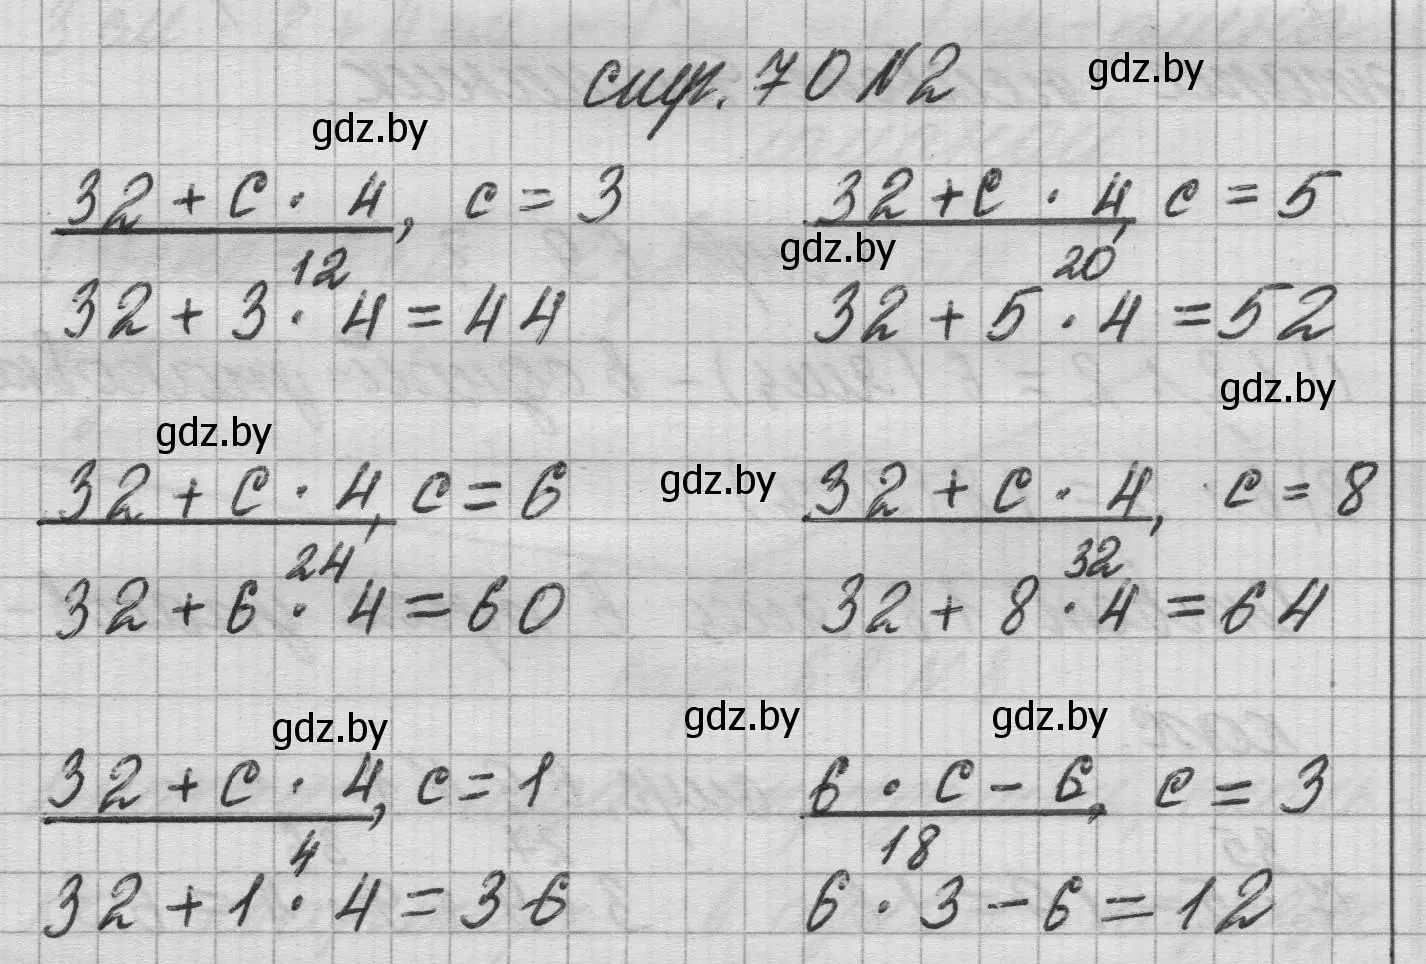 стр. 70 N 2
gdz.by
gdz.by
32 + c · 4, c = 3
32 + c · 4, c = 5
gdz.by
12
20
32 + 3 · 4 = 44
32 + 5 · 4 = 52
gdz.by
gdz.by
32 + c · 4, c = 6
gdz.by
32 + c · 4, c = 8
24
32
32 + 6 · 4 = 60
32 + 8 · 4 = 64
gdz.by
gdz.by
gdz.by
32 + c · 4, c = 1
6 · c - 6, c = 3
4
18
32 + 1 · 4 = 36
6 · 3 - 6 = 12